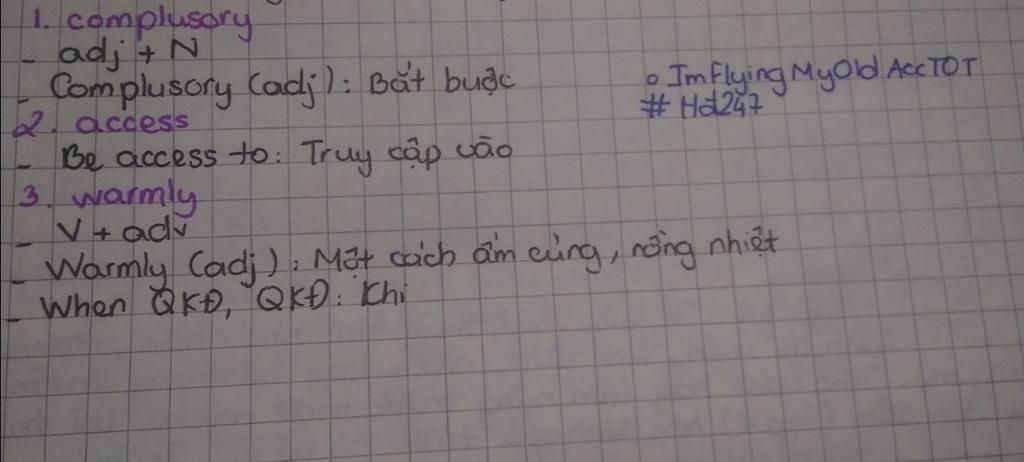 1. complusory
- adj + N
- Complusory (adj): Bắt buộc
o ImFlyingMyOldAccTOT
# Hd247
2. access
- Be access to: Truy cập vào
3. warmly
- V + adv
- Warmly (adj): Một cách ấm cúng, nồng nhiệt
- When QKĐ, QKĐ: Khi